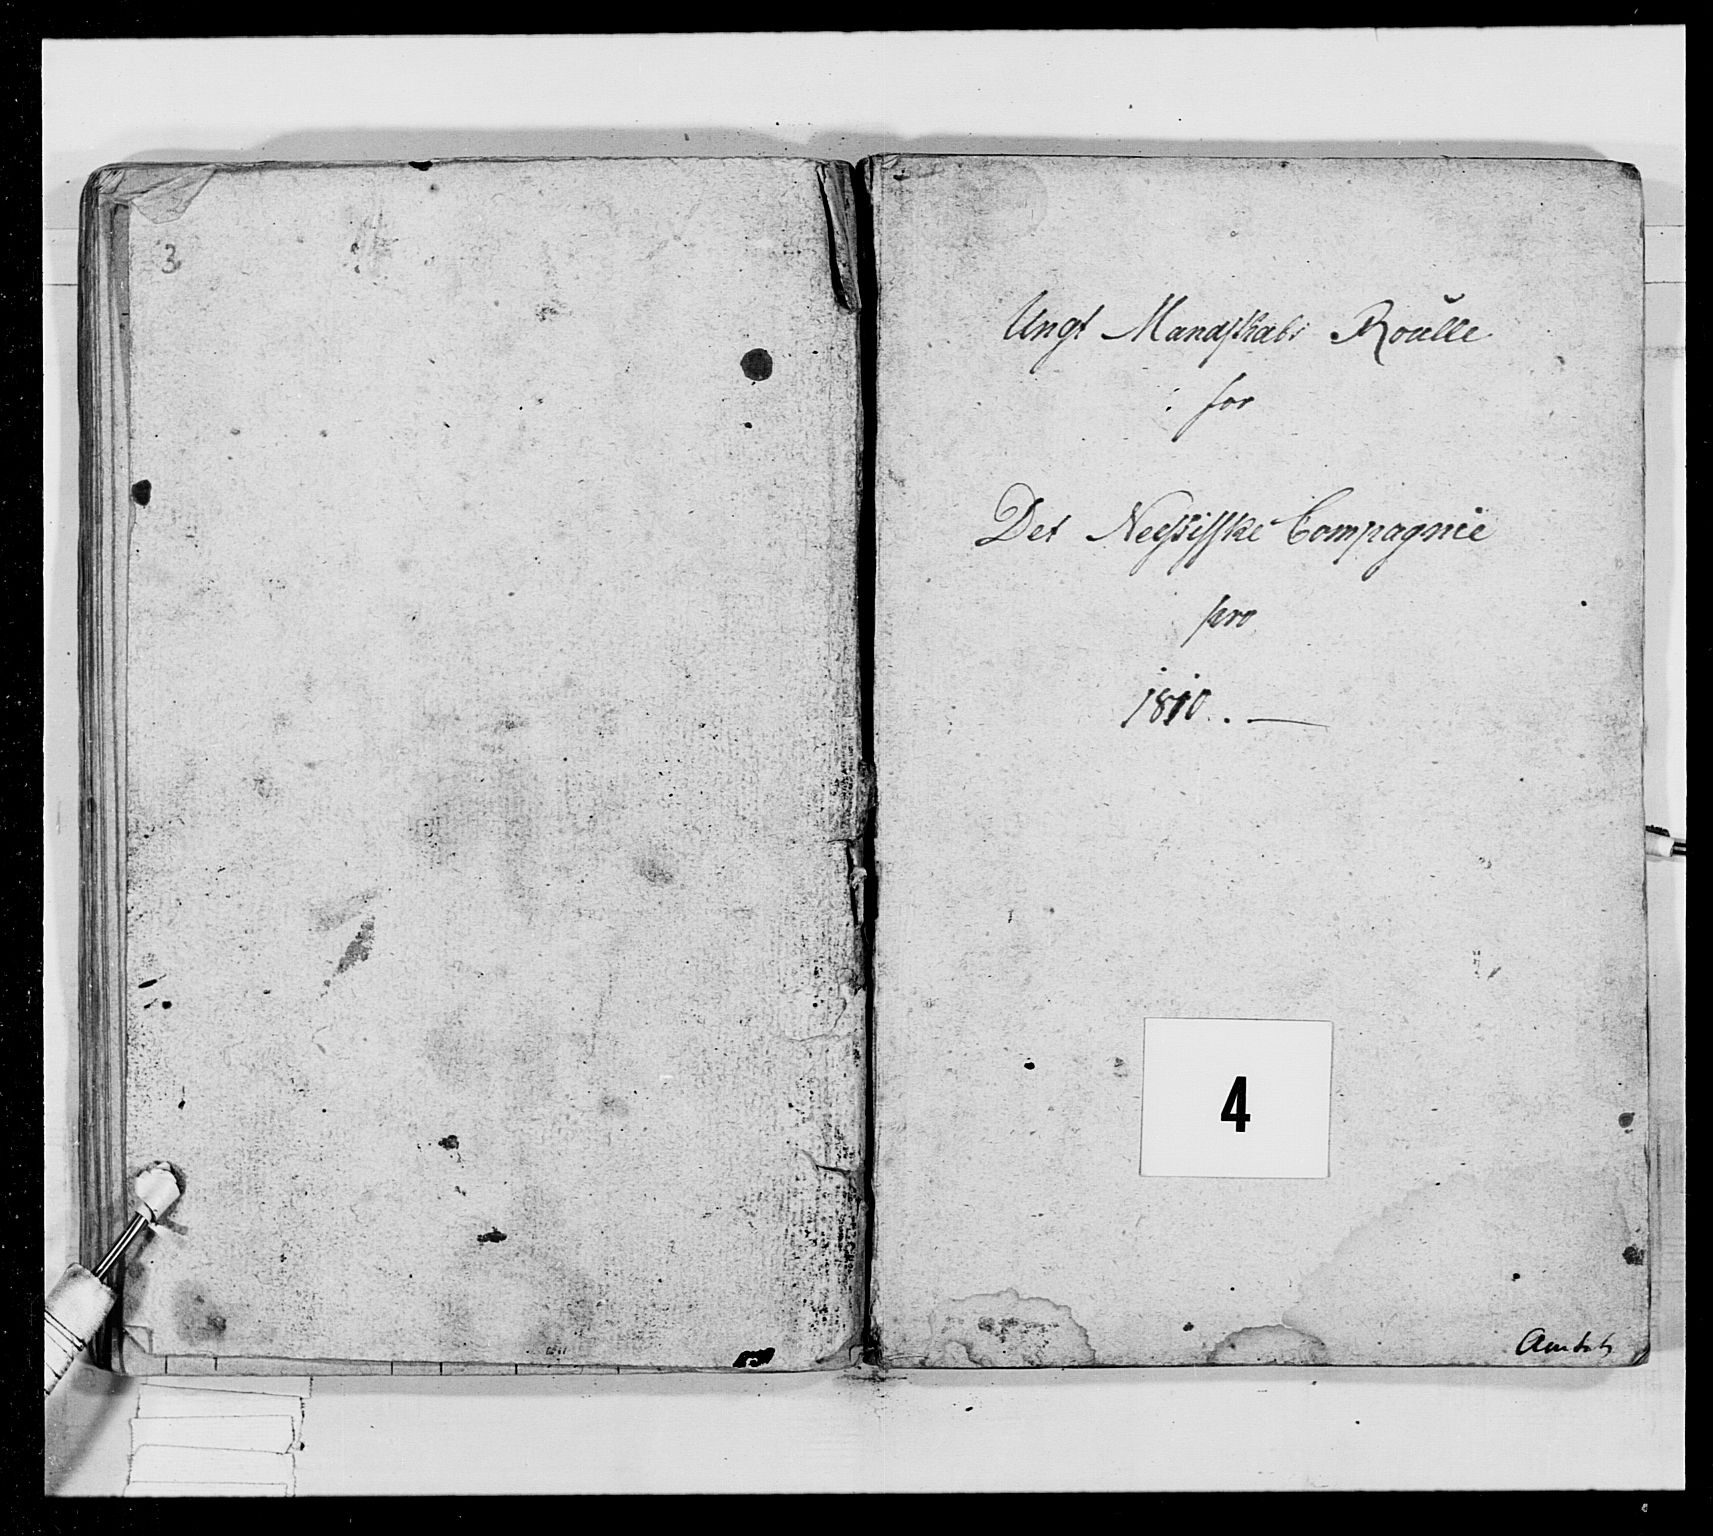 3
Ungt Mandskabs Roulle
for
Det Nessisske Compagnie
pro
1810. —
4